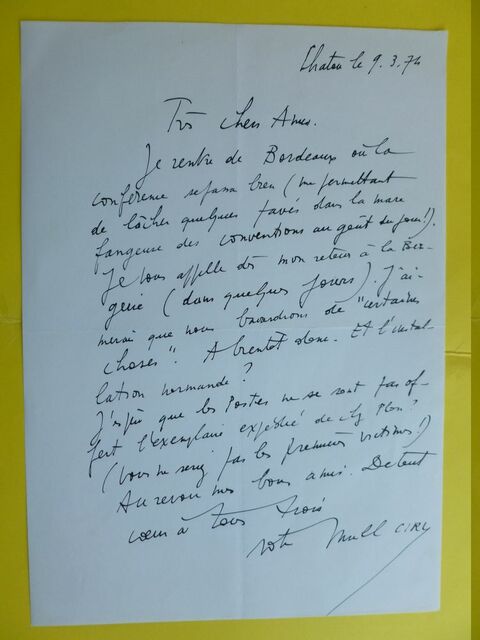 Chatou le 9.3.74
Très chers Amis.
Je rentre de Bordeaux où la
conférence se passa bien (me permettant
de lâcher quelques pavés dans la mare
fangeuse des conventions au goût du jour!).
Je vous appelle dès mon retour à la Ber-
gerie (dans quelques jours). J'ai-
merais que nous bavardions de "certaines
choses". A bientôt donc. Et l'instal-
lation normande?
J'espère que les Postes ne se sont pas of-
fert l'exemplaire expédié de chez Plon?
(vous ne seriez pas les premières victimes!)
Au revoir mes bons amis. De tout
cœur à tous trois
votre CIRY